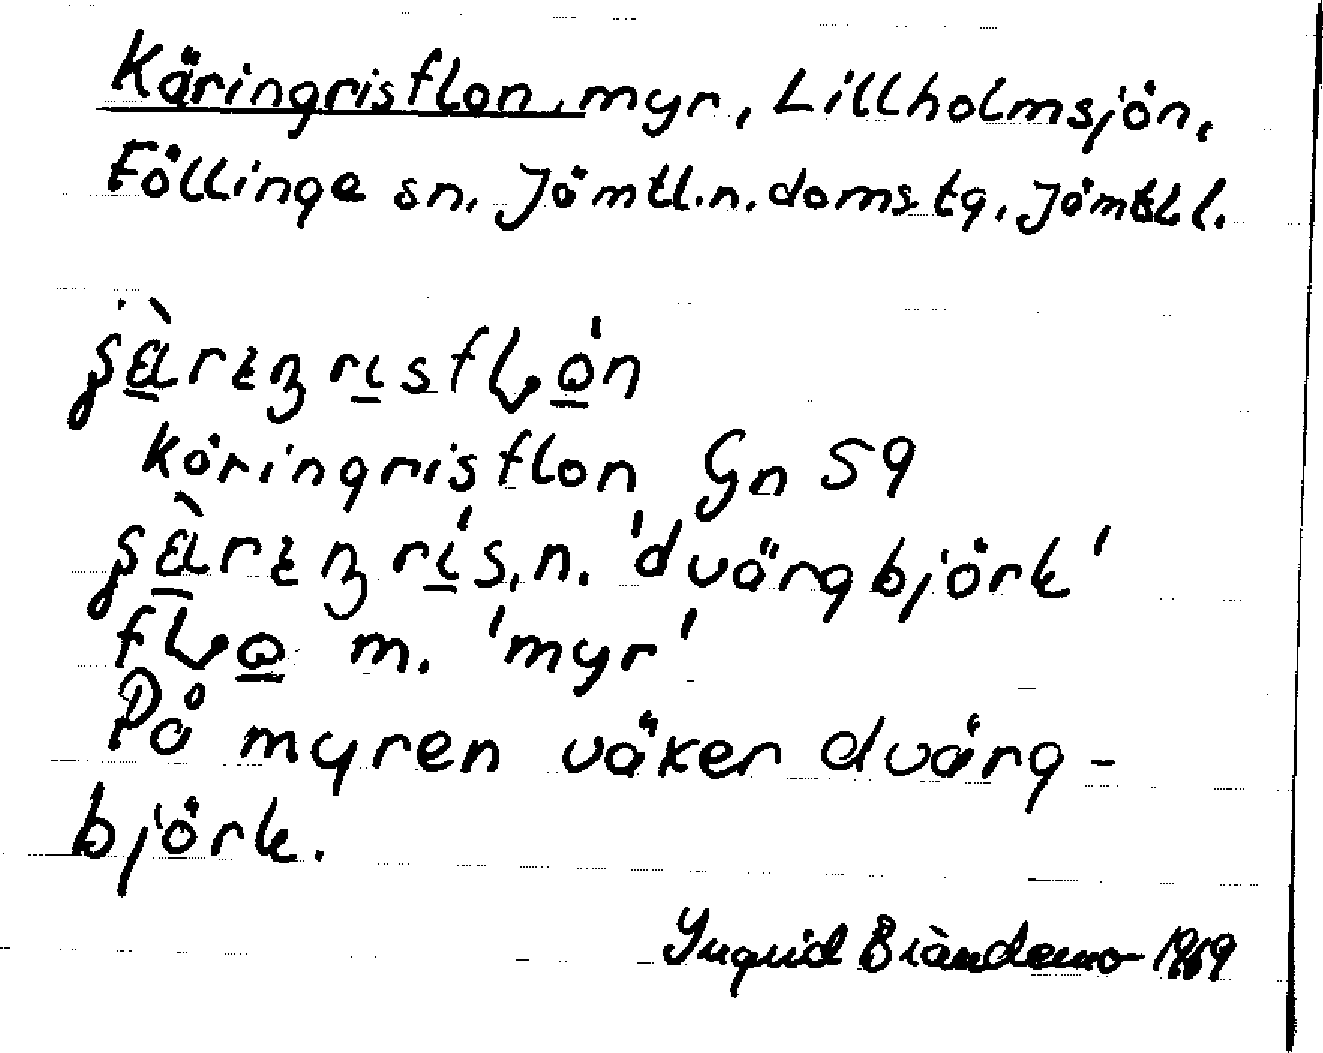 Käringrisflon, myr, Lillholmsjön,
Föllinge sn. Jämtl.n.doms.tg. Jämtl l.
käringrisflon Gn 59
n. 'dvärgbjörk'
m. 'myr'
På myren väker dvärg-
björk.
Ingrid Brändemo 1969